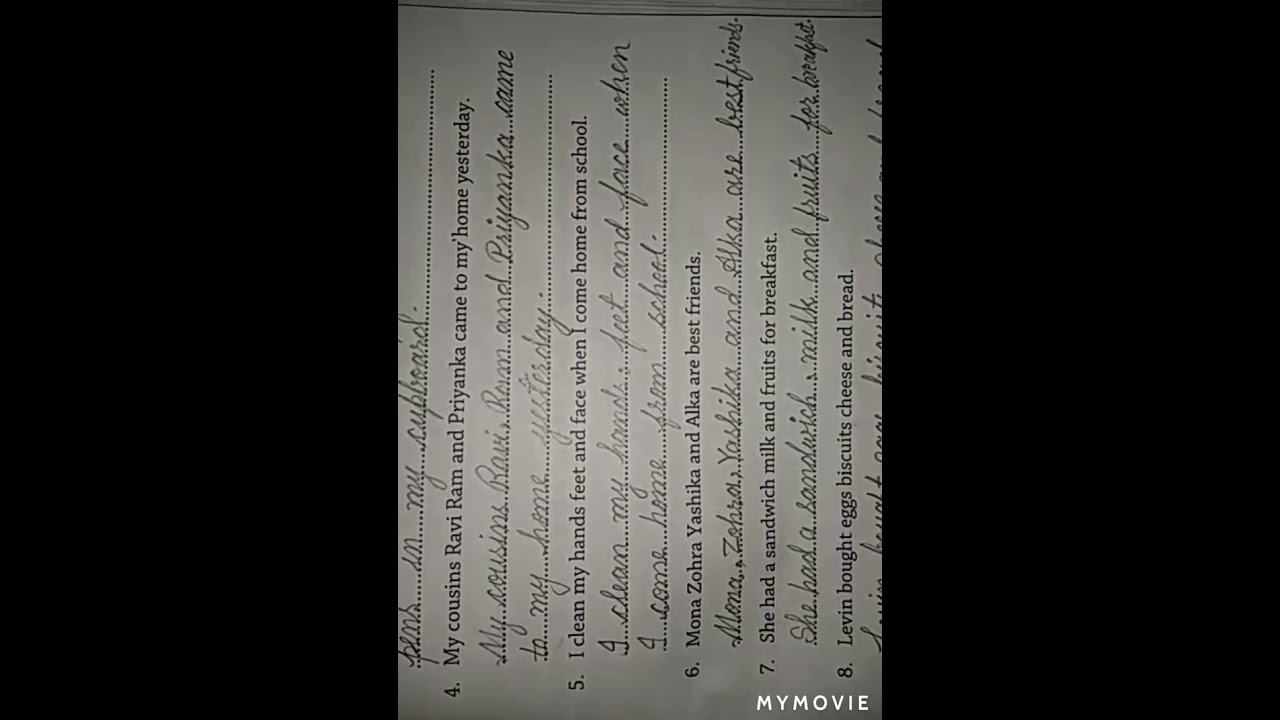 pens in my cupboard.
4. My cousins Ravi Ram and Priyanka came to my home yesterday.
My cousins Ravi, Ram and Priyanka came
to my home yesterday.
5. I clean my hands feet and face when I come home from school.
I clean my hands, feet and face when
I come home from school.
6. Mona Zohra Yashika and Alka are best friends.
Mona, Zohra, Yashika and Alka are best friends.
7. She had a sandwich milk and fruits for breakfast.
She had a sandwich, milk and fruits for breakfast.
8. Levin bought eggs biscuits cheese and bread.
Levin bought eggs biscuits, cheese and bread
MYMOVIE